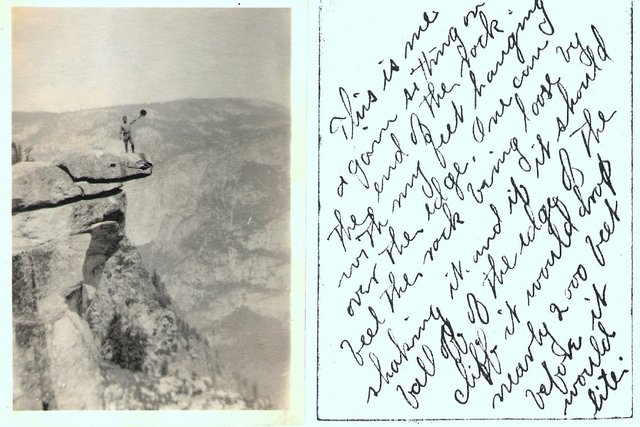 This is me
again sitting on
the end of the rock
with my feet hanging
over the edge. One can
feel the rock being loose by
shaking it. and if it should
fall off of the edge of the
cliff it would drop
nearly 2000 feet
before it
would
lite.